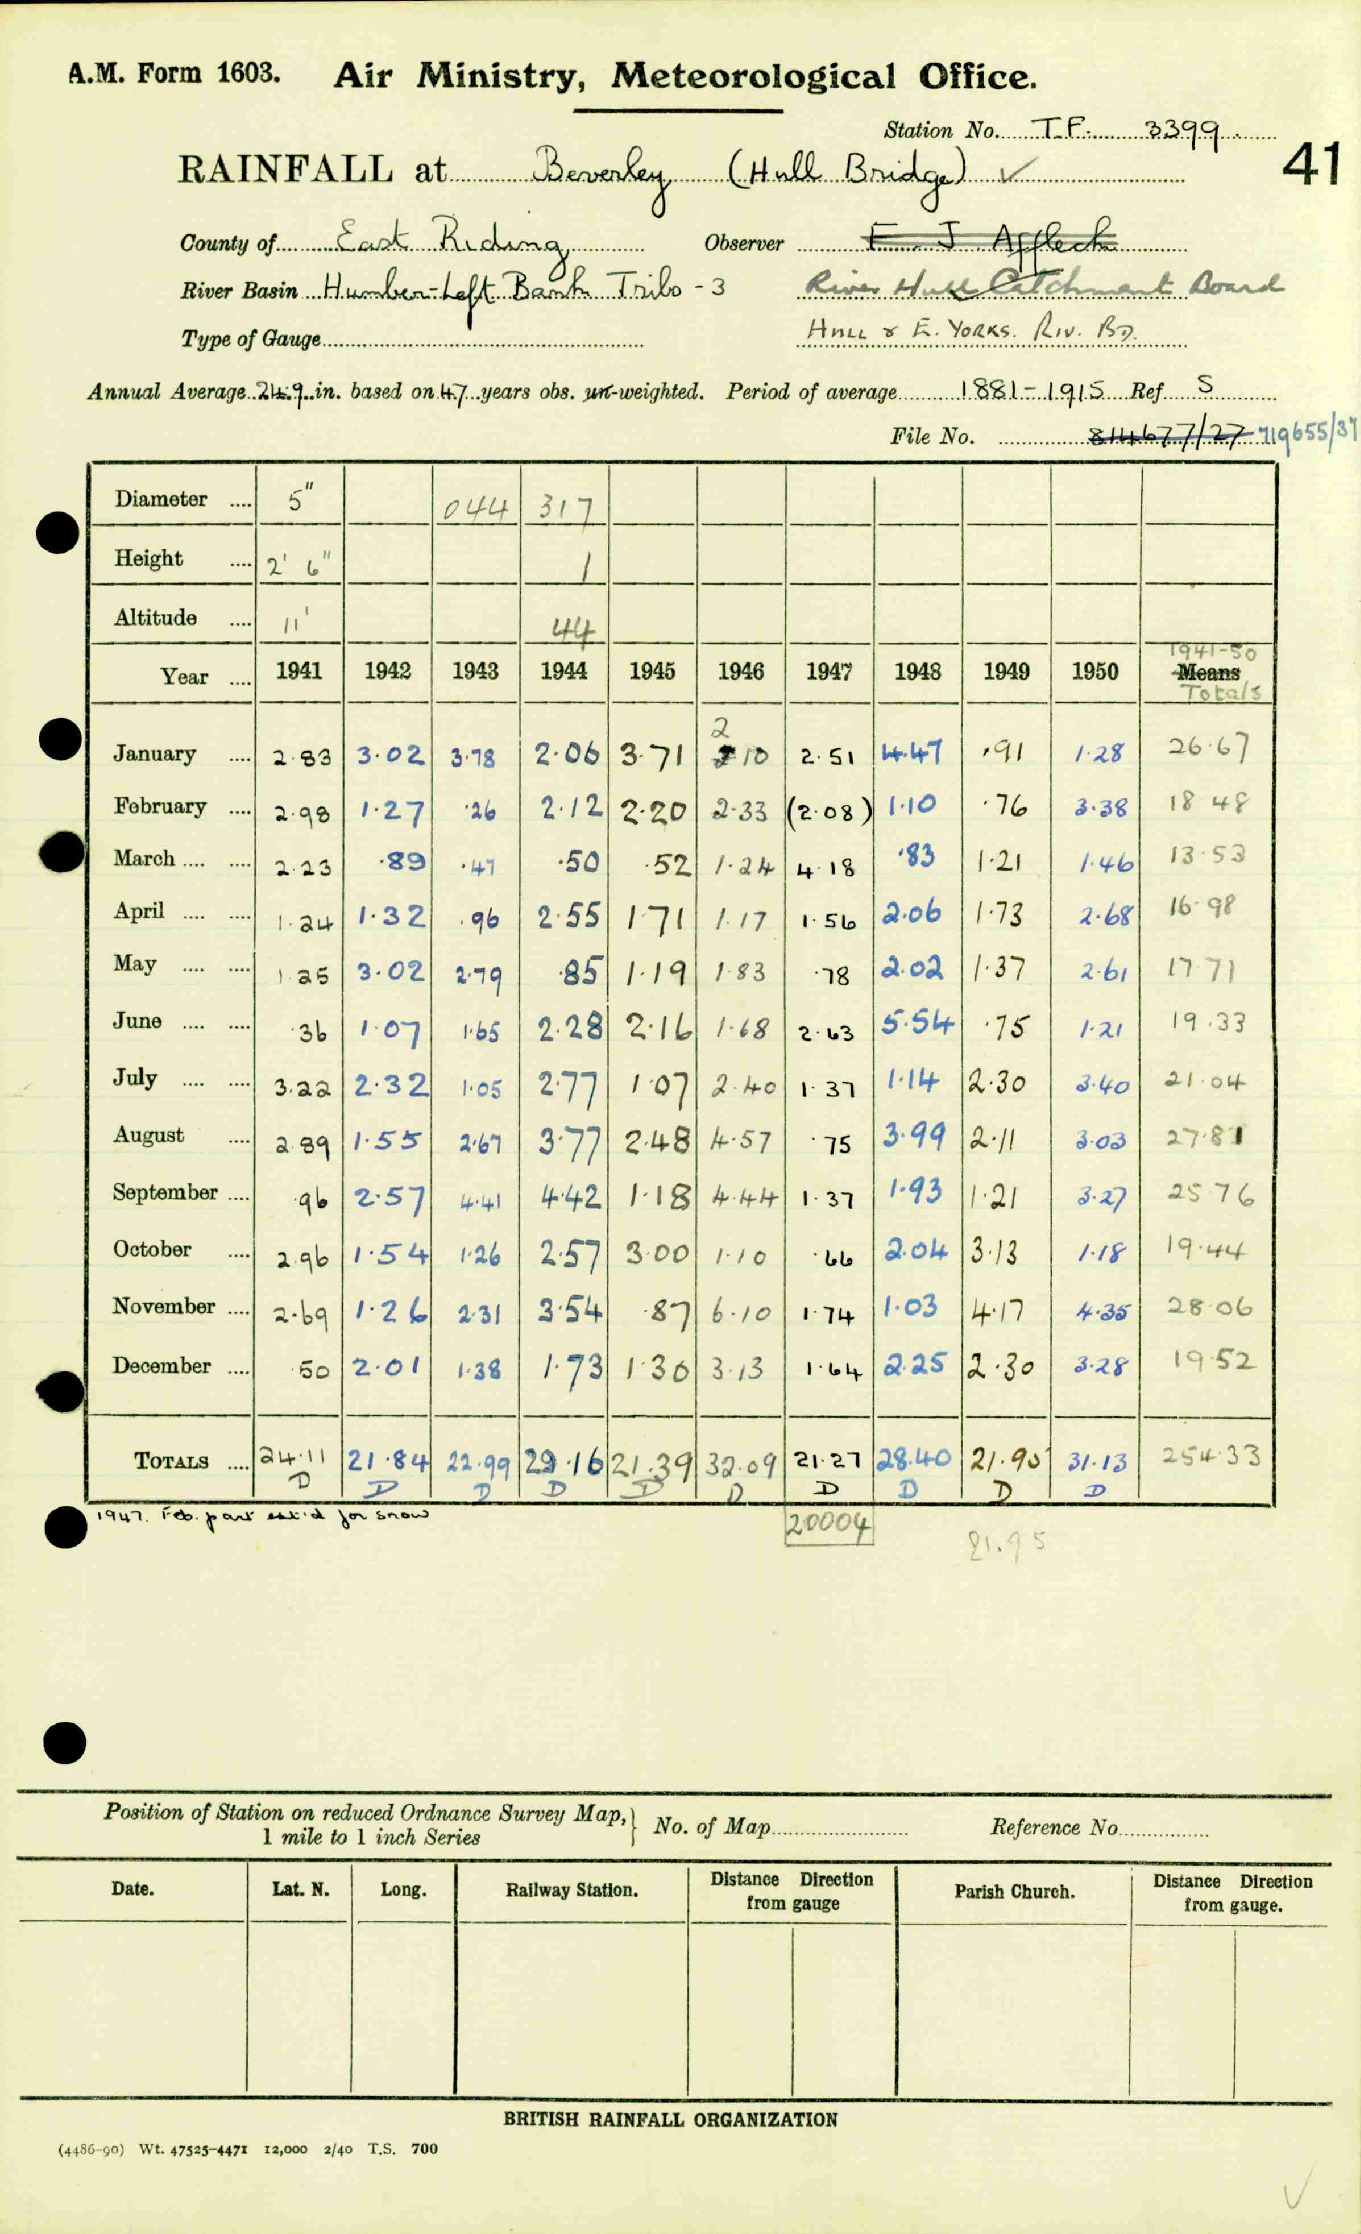 A.M. Form 1603. Air Ministry, Meteorological Office.
Station No. T.F. 3399.
41
RAINFALL at Beverley (Hull Bridge) ✓
County of East Riding Observer E J Affleck
River Basin Humber-Left Bank Tribs - 3 River Hull Catchment Board
Type of Gauge HULL & E. YORKS. RIV. BD.
Annual Average 24.9 in. based on 47 years obs. un-weighted. Period of average 1881-1915 Ref S
File No. 814677/27 719655/37
Diameter .... 5" 044 317
Height .... 2' 6" 1
Altitude .... 11' 44
1941-50
Year .... 1941 1942 1943 1944 1945 1946 1947 1948 1949 1950 Means
Totals
2
January .... 2.83 3.02 3.78 2.06 3.71 10 2.51 4.47 .91 1.28 26.67
February .... 2.98 1.27 .26 2.12 2.20 2.33 (2.08) 1.10 .76 3.38 18 48
March .... .... 2.23 .89 .47 .50 .52 1.24 4.18 .83 1.21 1.46 13.53
April .... .... 1.24 1.32 .96 2.55 1.71 1.17 1.56 2.06 1.73 2.68 16.98
May .... .... 1.25 3.02 2.79 .85 1.19 1.83 .78 2.02 1.37 2.61 17.71
June .... .... .36 1.07 1.65 2.28 2.16 1.68 2.63 5.54 .75 1.21 19.33
July .... .... 3.22 2.32 1.05 2.77 1.07 2.40 1.37 1.14 2.30 3.40 21.04
August .... 2.89 1.55 2.67 3.77 2.48 4.57 .75 3.99 2.11 3.03 27.81
September .... .96 2.57 4.41 4.42 1.18 4.44 1.37 1.93 1.21 3.27 25.76
October .... 2.96 1.54 1.26 2.57 3.00 1.10 .66 2.04 3.13 1.18 19.44
November .... 2.69 1.26 2.31 3.54 .87 6.10 1.74 1.03 4.17 4.35 28.06
December .... .50 2.01 1.38 1.73 1.30 3.13 1.64 2.25 2.30 3.28 19.52
TOTALS .... 24.11 21.84 22.99 29.16 21.39 32.09 21.27 28.40 21.95 31.13 254.33
D D D D D D D D D D
1947. Feb. part est'd for snow
20004
21.95
Position of Station on reduced Ordnance Survey Map, 1 mile to 1 inch Series } No. of Map Reference No.
Date. Lat. N. Long. Railway Station. Distance Direction from gauge Parish Church. Distance Direction from gauge.
BRITISH RAINFALL ORGANIZATION
(4486-90) Wt. 47525-4471 12,000 2/40 T.S. 700
✓